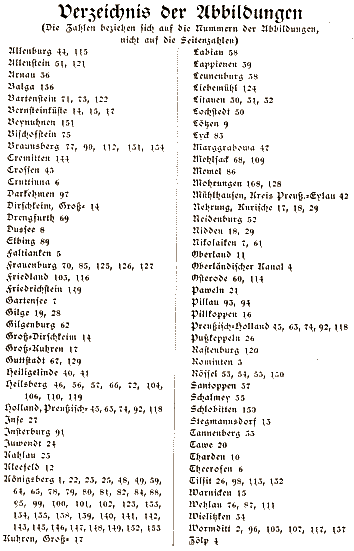 Verzeichnis der Abbildungen
(Die Zahlen beziehen sich auf die Nummern der Abbildungen,
nicht auf die Seitenzahlen)
Allenburg 44, 115
Allenstein 51, 121
Arnau 36
Balga 136
Bartenstein 71, 73, 122
Bernsteinküste 14, 15, 17
Beynuhnen 151
Bischofstein 75
Braunsberg 77, 90, 112, 131, 134
Cremitten 144
Crossen 43
Cruttinna 6
Darkehmen 97
Dirschkeim, Groß- 14
Drengfurth 69
Dussee 8
Elbing 89
Faltianken 5
Frauenburg 70, 85, 125, 126, 127
Friedland 103, 116
Friedrichstein 149
Gartensee 7
Gilge 19, 28
Gilgenburg 62
Groß-Dirschkeim 14
Groß-Kuhren 17
Guttstadt 67, 129
Heiligelinde 40, 41
Heilsberg 46, 56, 57, 66, 72, 104,
106, 110, 119
Holland, Preußisch- 45, 63, 74, 92, 118
Inse 27
Insterburg 91
Juwendt 24
Kahlau 25
Kleefeld 12
Königsberg 1, 22, 23, 25, 48, 49, 59,
64, 65, 78, 79, 80, 81, 82, 84, 88,
95, 99, 100, 101, 102, 123, 133,
134, 135, 138, 139, 140, 141, 142,
143, 145, 146, 147, 148, 149, 152, 153
Kuhren, Groß- 17
Labian 58
Lappienen 39
Leunenburg 38
Liebemühl 124
Litauen 30, 31, 32
Lochstedt 50
Lötzen 9
Lyck 83
Marggrabowa 47
Mehlsack 68, 109
Memel 86
Mohrungen 108, 128
Mühlhausen, Kreis Preuß.-Eylau 42
Nehrung, Kurische 17, 18, 29
Neidenburg 52
Nidden 18, 29
Nikolaiken 7, 61
Oberland 11
Oberländischer Kanal 4
Osterode 60, 114
Paweln 21
Pillau 93, 94
Pillkoppen 16
Preußisch-Holland 45, 63, 74, 92, 118
Pußkeppeln 26
Rastenburg 120
Rominten 3
Rößel 53, 54, 55, 130
Santoppen 37
Schalmey 35
Schlobitten 150
Stegmannsdorf 13
Tannenberg 33
Tawe 20
Tharden 10
Theerofen 6
Tilsit 26, 98, 113, 132
Warnicken 15
Wehlau 76, 87, 111
Wielitzken 34
Wormditt 2, 96, 105, 107, 117, 137
Zölp 4